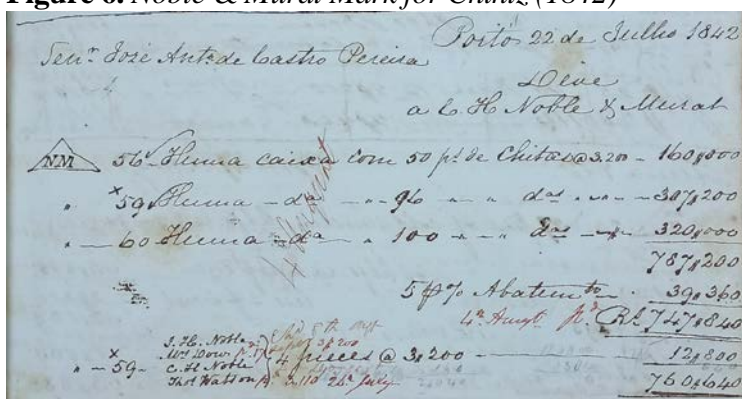 Figure 6. Noble & Murat Mark for Chintz, (1842)
Porto 22 de Julho 1842
Senr. Joze Anto. de Castro Pereira
Deve
a C. H. Noble & Murat
NM 56 Huma caixa com 50 ps. de Chitas @ 3.200 - 160,000
" x 59 Huma - da - " - 96 " - " das " - " - 307,200
" - 60 Huma - da - " 100 " - " das - " - 320,000
787,200
5 p% Abatimto - 39,360
4th August pd Rs. 747,840
4 August
J. H. Noble
Wm Dow
" - x 59 - C. H. Noble 4 pieces @ 3,200 - 12,800
Thos Watson 3,110 26 July
760,640